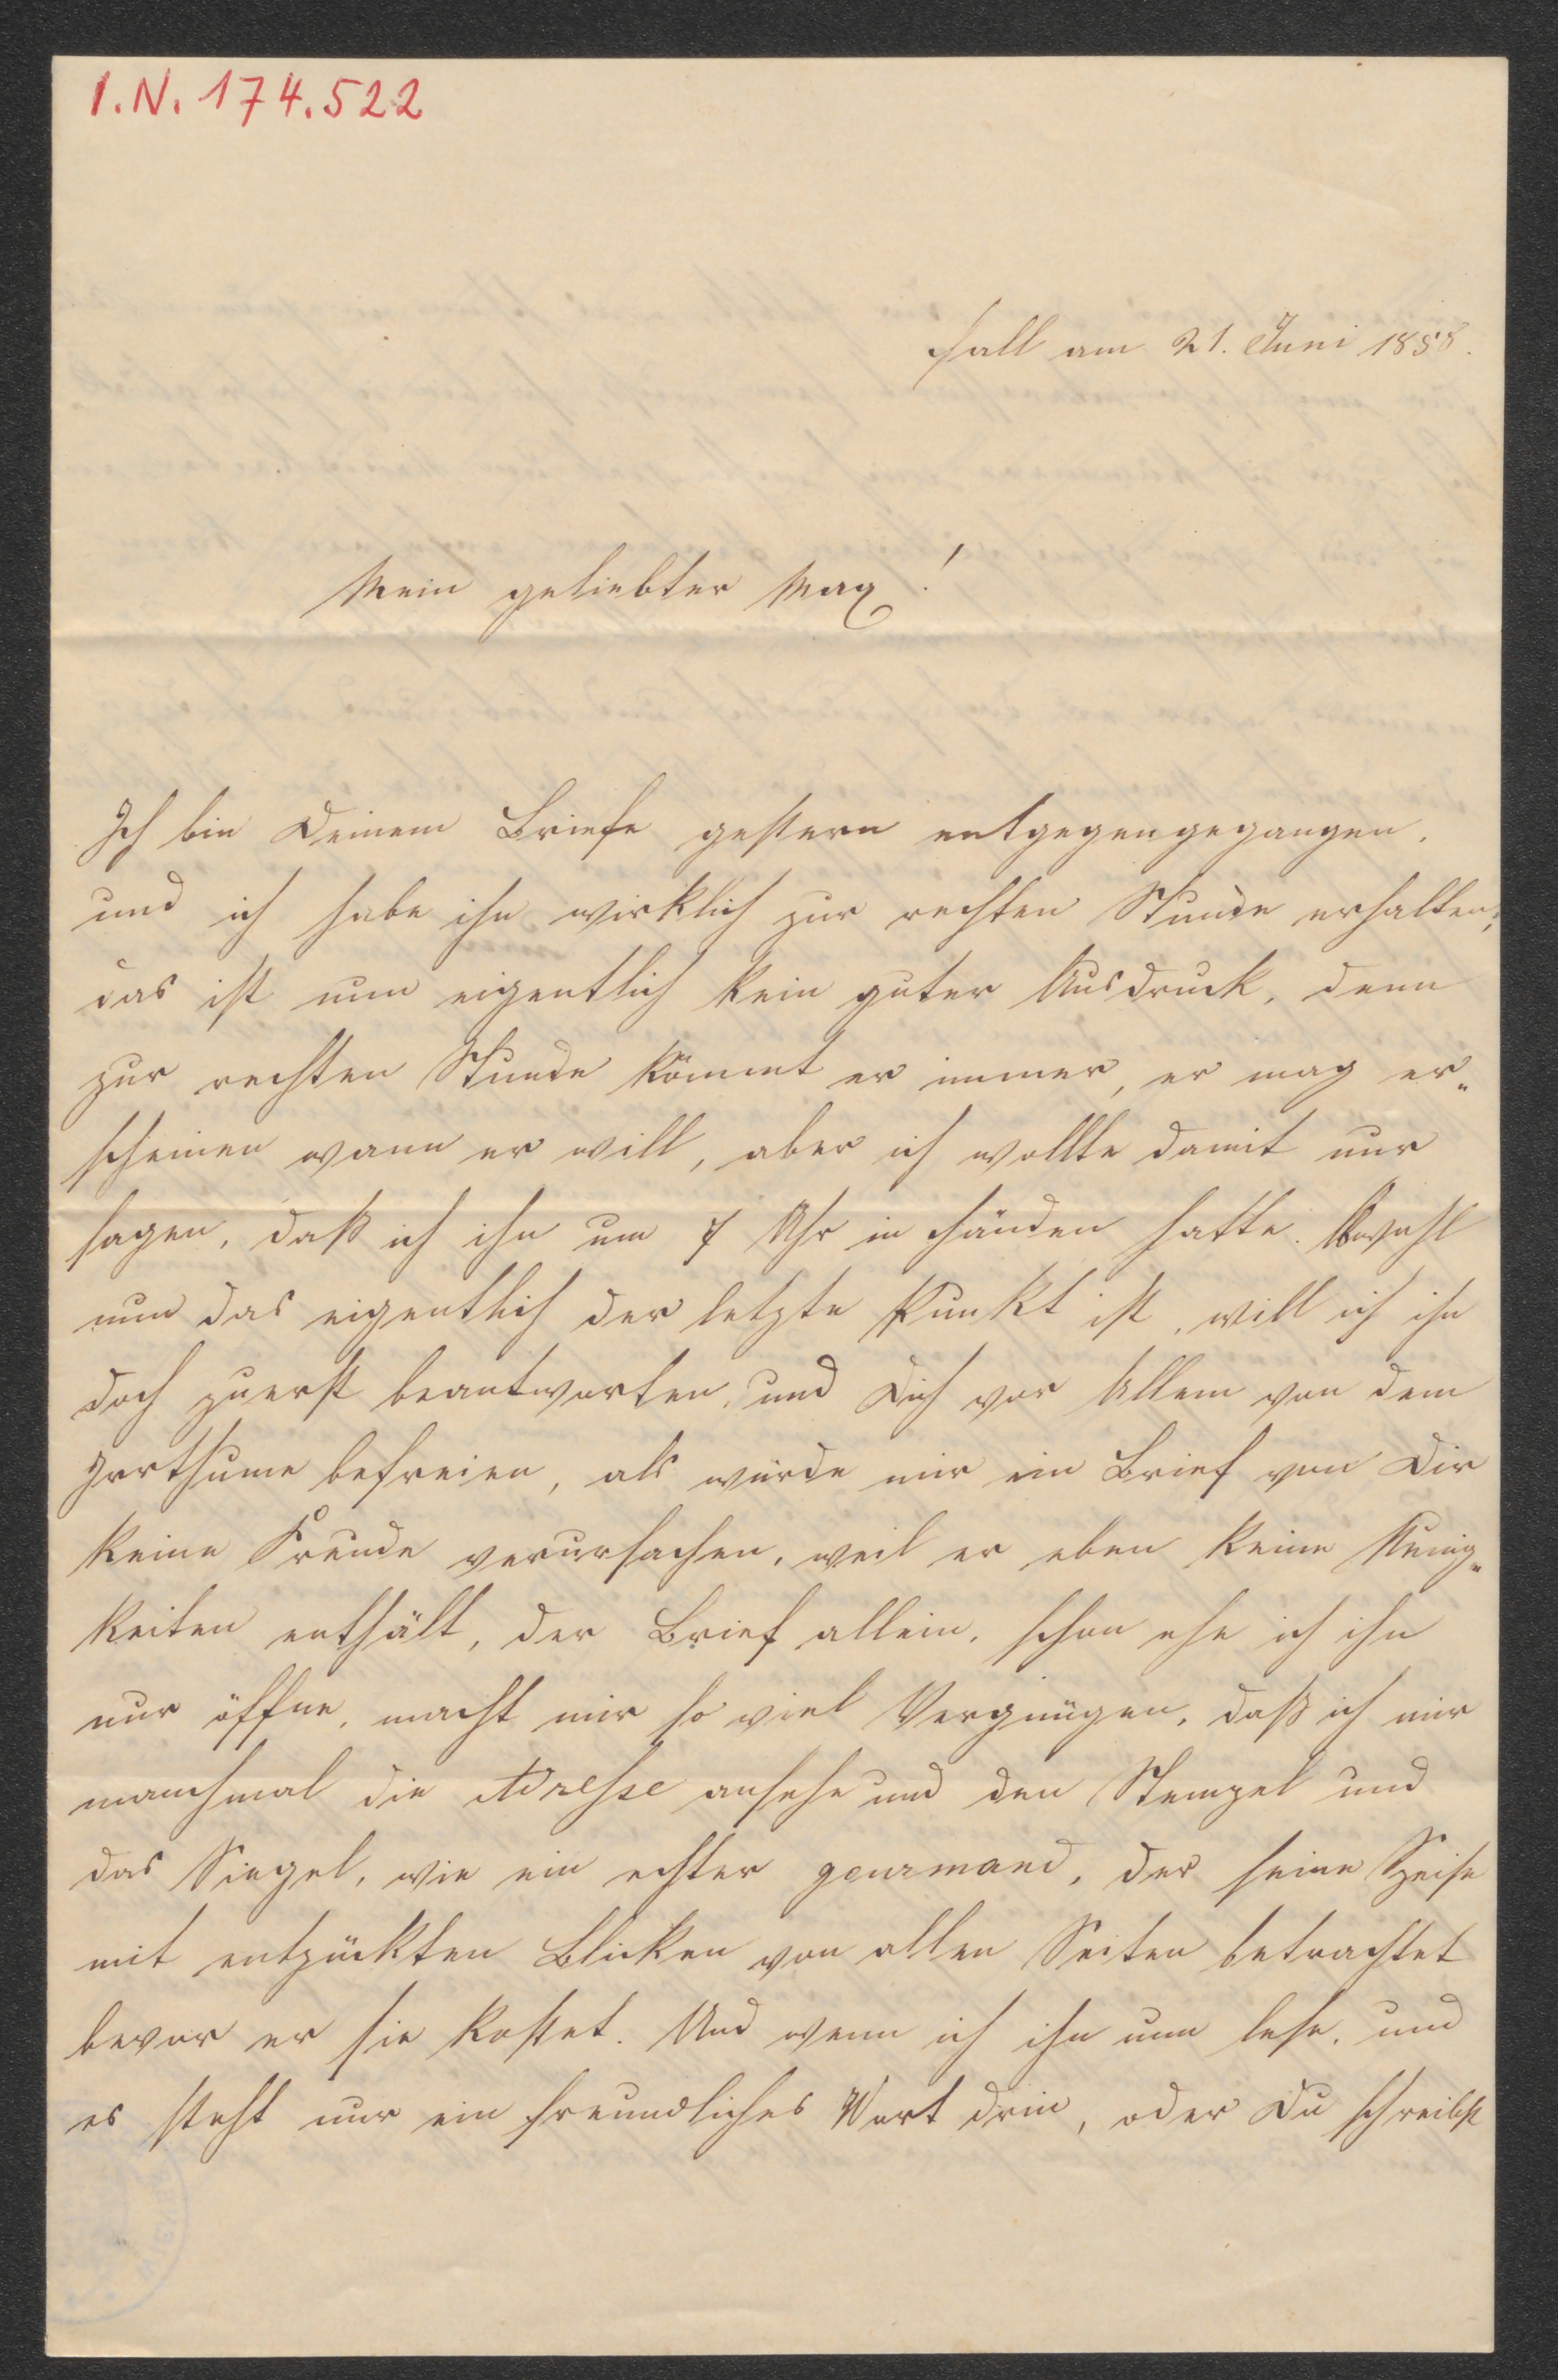 I.N. 174.522
Hall am 21. Juni 1858.
Mein geliebter Max!
Ich bin Deinem Briefe gestern entgegengegangen,
und ich habe ihn wirklich zur rechten Stunde erhalten;
das ist nun eigentlich kein guter Ausdruck, denn
zur rechten Stunde kömmt er immer, er mag er„
scheinen wann er will, aber ich wollte damit nur
sagen, daß ich ihn um 7 Uhr in Händen hatte. Obwohl
nun das eigentlich der letzte Punkt ist, will ich ihn
doch zuerst beantworten, und Dich vor Allem von dem
Irrthume befreien, als würde mir ein Brief von Dir
keine Freude verursachen, weil er eben keine Neuig„
keiten enthält, der Brief allein, schon ehe ich ihn
nur öffne, macht mir so viel Vergnügen, daß ich mir
manchmal die Adresse ansehe und den Stempel und
das Siegel, wie ein echter gourmand, der seine Speise
mit entzückten Blicken von allen Seiten betrachtet
bevor er sie kostet. Und wenn ich ihn nun lese, und
es steht nur ein freundliches Wort drin, oder Du schreibst